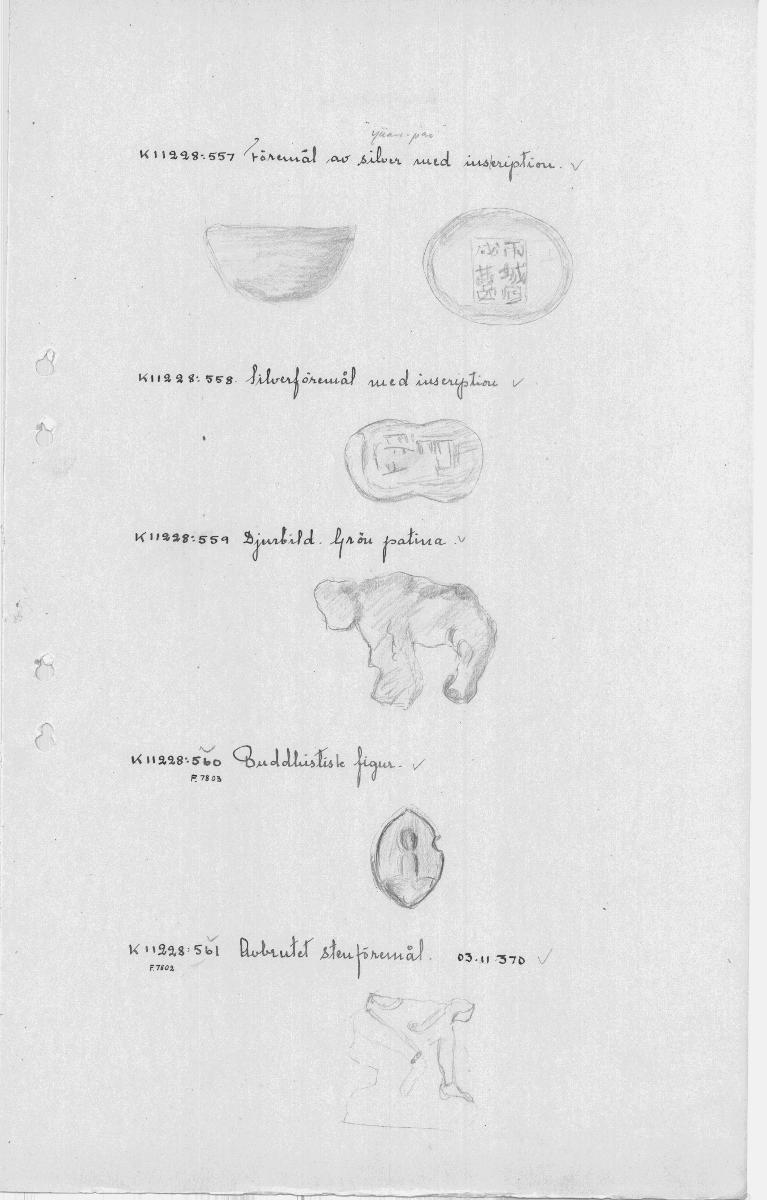 "yüan-pao"
K11228:557 Föremål av silver med inscription.
K11228:558. Silverföremål med inscription
K11228:559 Djurbild. Grön patina.
K11228:560 Buddhistisk figur.
F.7803
K11228:561 Avbrutet stenföremål. 03.11.370
F.7802